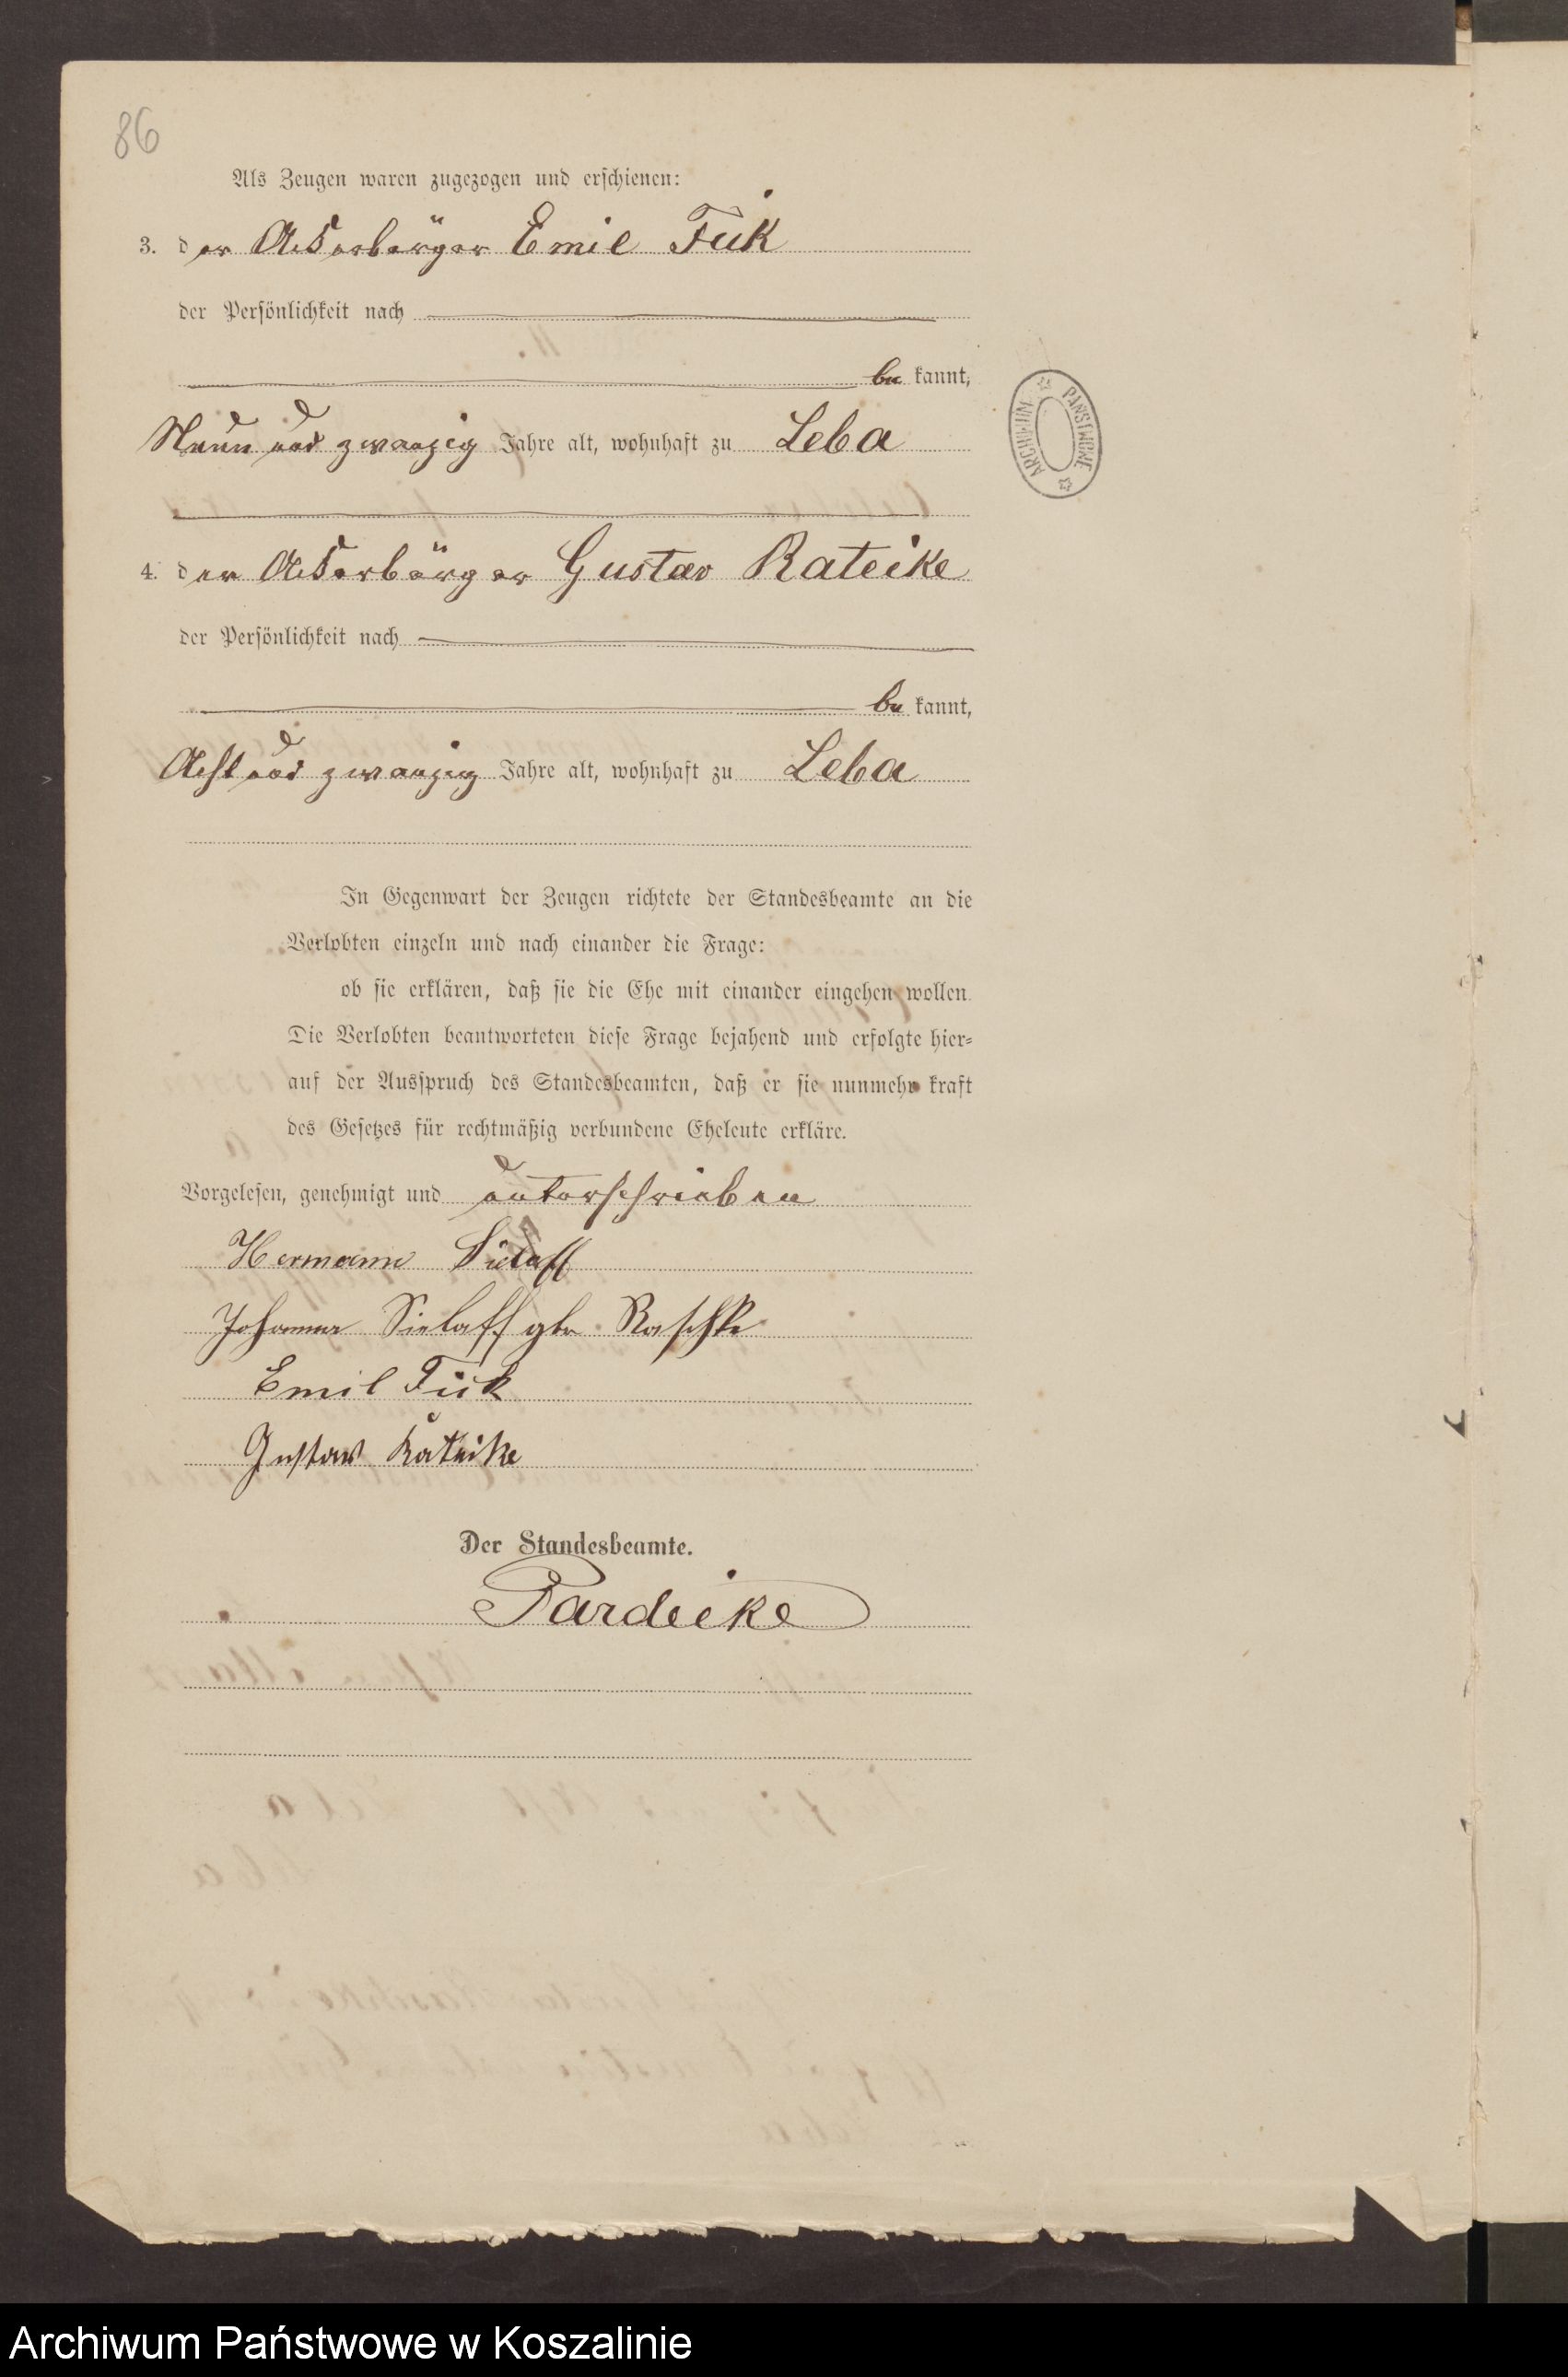 86
Als Zeugen waren zugezogen und erschienen:
3. der Ackerbürger Emil Fick
der Persönlichkeit nach
be kannt,
Neun und zwanzig Jahre alt, wohnhaft zu Leba
4. der Ackerbürger Gustav Rateike
der Persönlichkeit nach
be kannt,
Acht und zwanzig Jahre alt, wohnhaft zu Leba
In Gegenwart der Zeugen richtete der Standesbeamte an die
Verlobten einzeln und nach einander die Frage:
ob sie erklären, daß sie die Ehe mit einander eingehen wollen.
Die Verlobten beantworteten diese Frage bejahend und erfolgte hier-
auf der Ausspruch des Standesbeamten, daß er sie nunmehr kraft
des Gesetzes für rechtmäßig verbundene Eheleute erkläre.
Vorgelesen, genehmigt und unterschrieben
Hermann Sielaff
Johanna Sielaff geb. Raschke
Emil Fick
Gustav Rateike
Der Standesbeamte.
Pardeike
ARCHIWUM PAŃSTWOWE
Archiwum Państwowe w Koszalinie